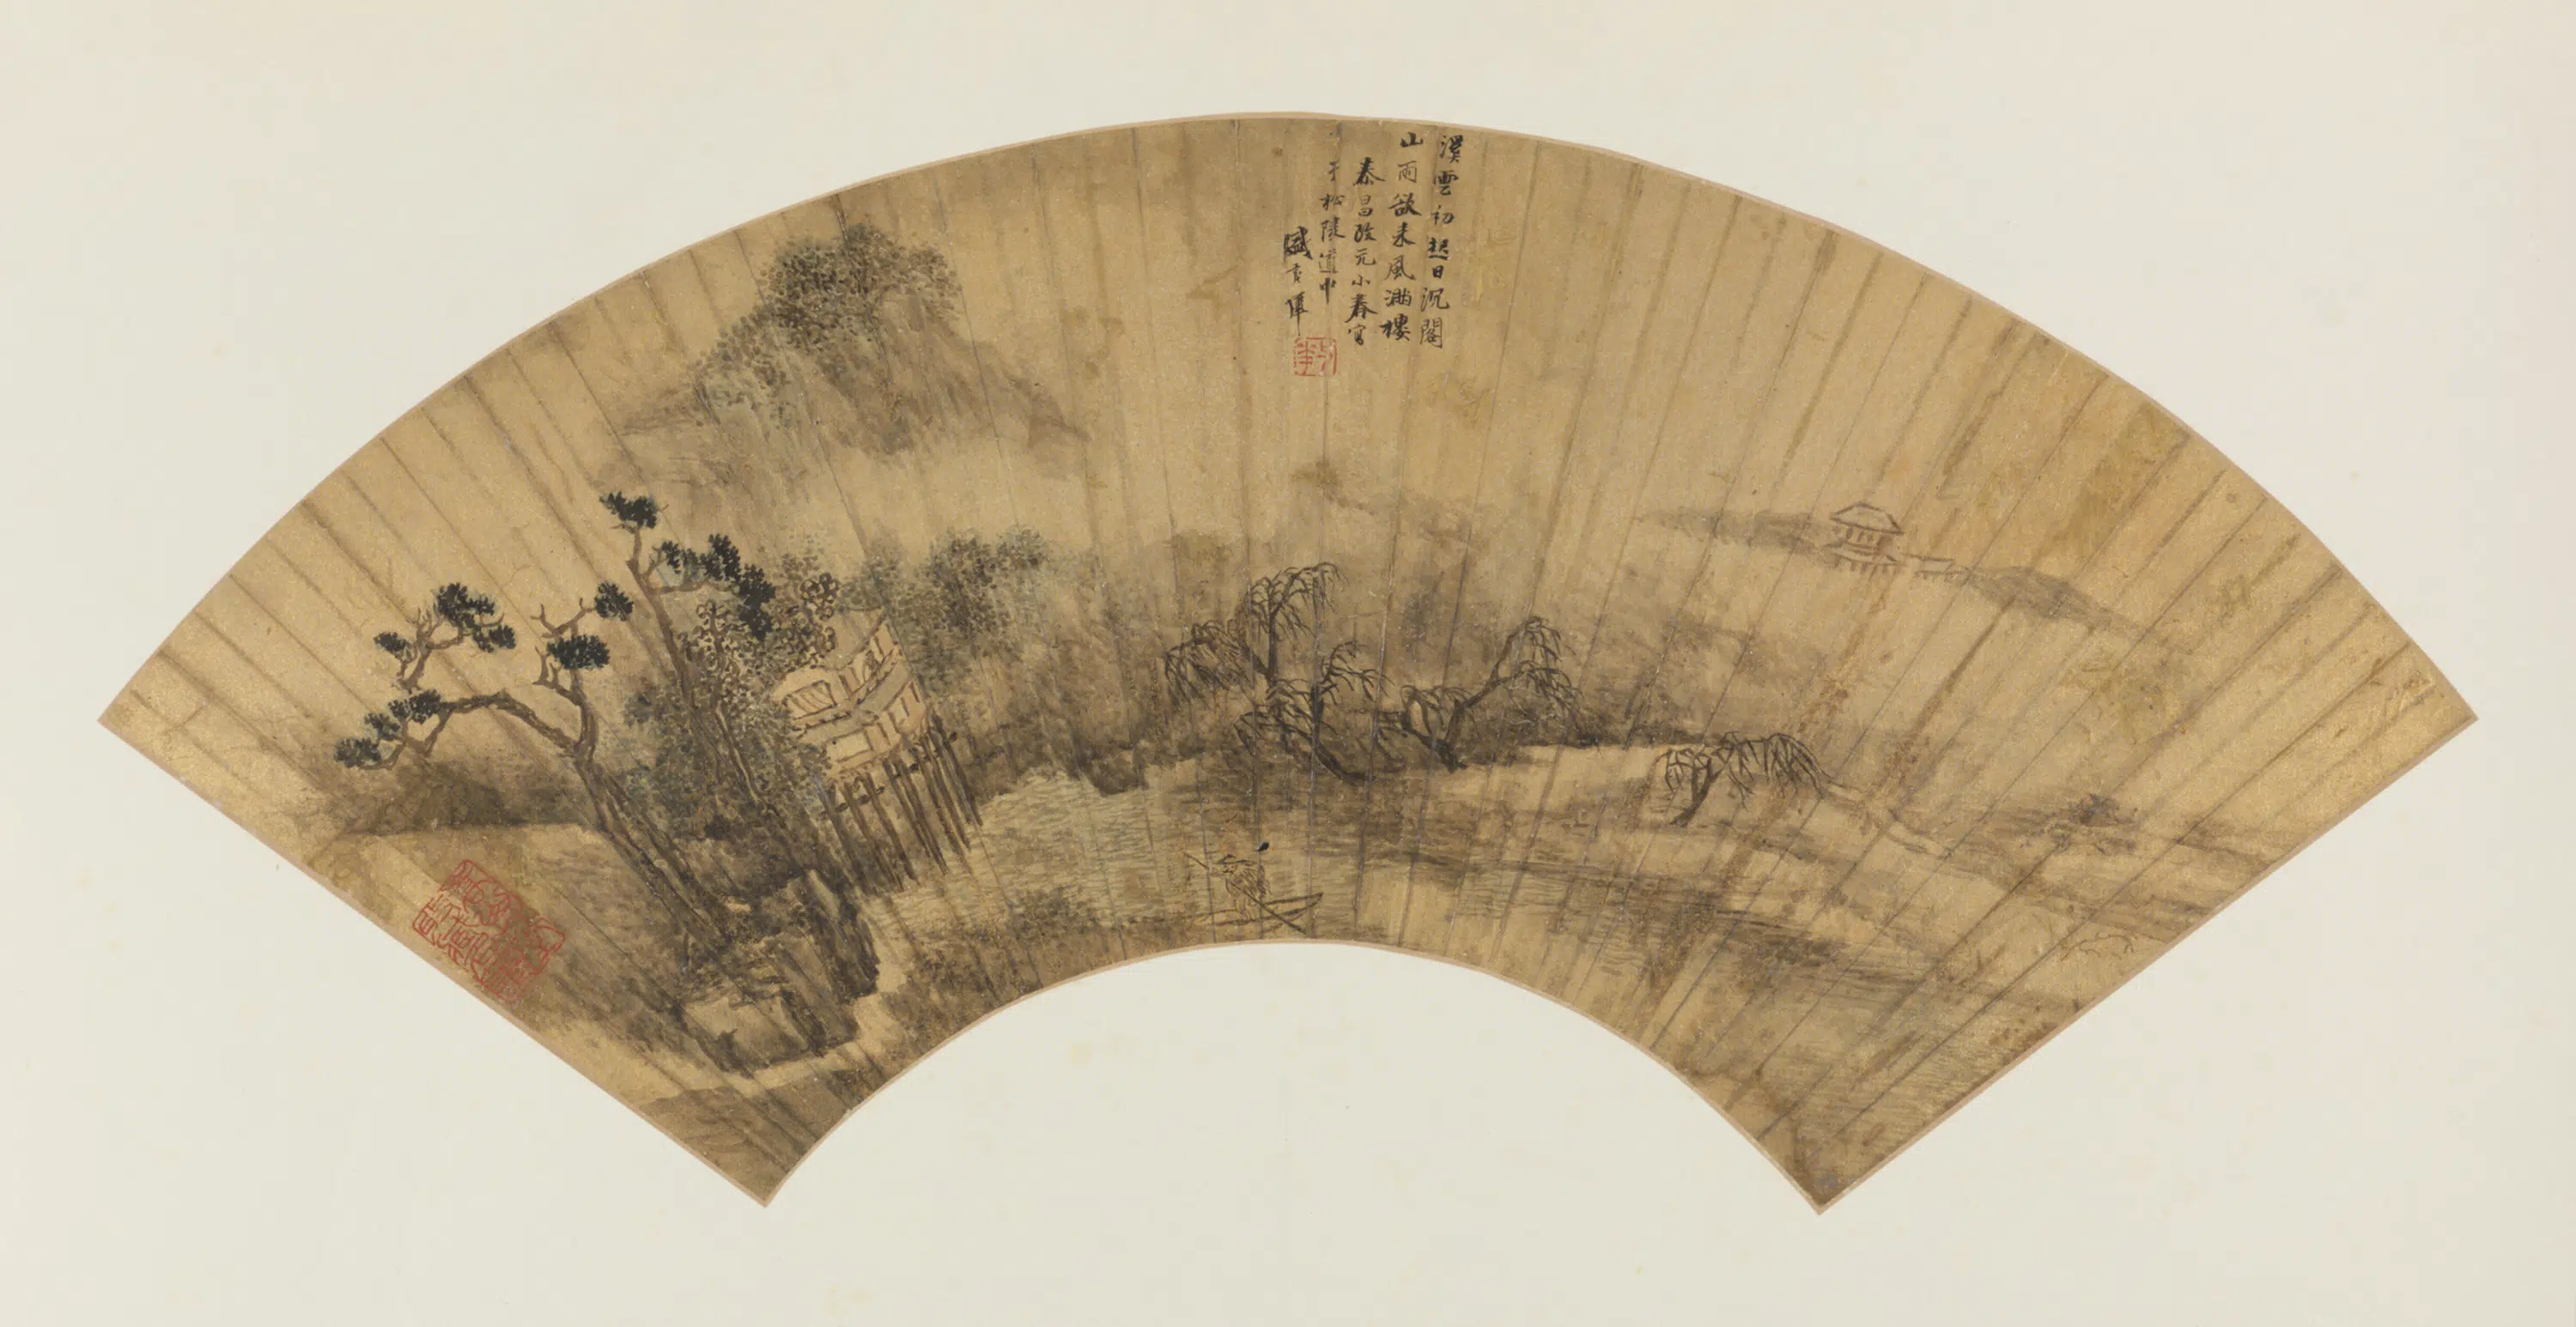 溪雲初起日沉閣
山雨欲来風滿樓
泰昌改元小春寫
于松陵道中
盛茂燁